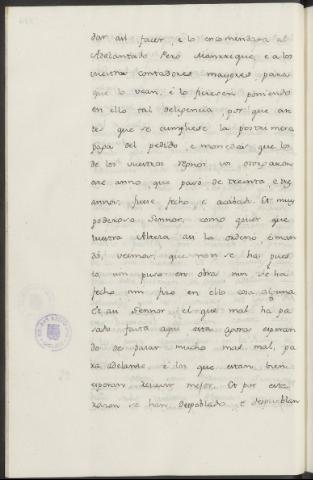 dar asi facer, e lo encomendara al
Adelantado Pero Manrrique, e a los
vuestros contadores mayores, para
que lo vean, e lo ficiesen poniendo
en ello tal deligencia, por que an
te que se cumpliese la postrimera
paga del pedido, e monedas que los
de los vuestros regnos vos otorgaron
este anno, que pasó de treinta, e tres
annos, fuese fecho, e acabado. Et muy
poderoso Sennor, como quier que
vuestra Alteza asi lo ordenó, é man
dó, veemos, que non se ha pues
to, nin puso en obra nin se ha
fecho nin fizo en ello cosa alguna
Et asi Sennor, el que mal ha pa
sado fasta aqui está agora esperan
do de pasar mucho mas mal, pa
ra adelante, é los que estan bien
esperan xamas mejor. Et por esta
razon se han despoblado, e despueblan